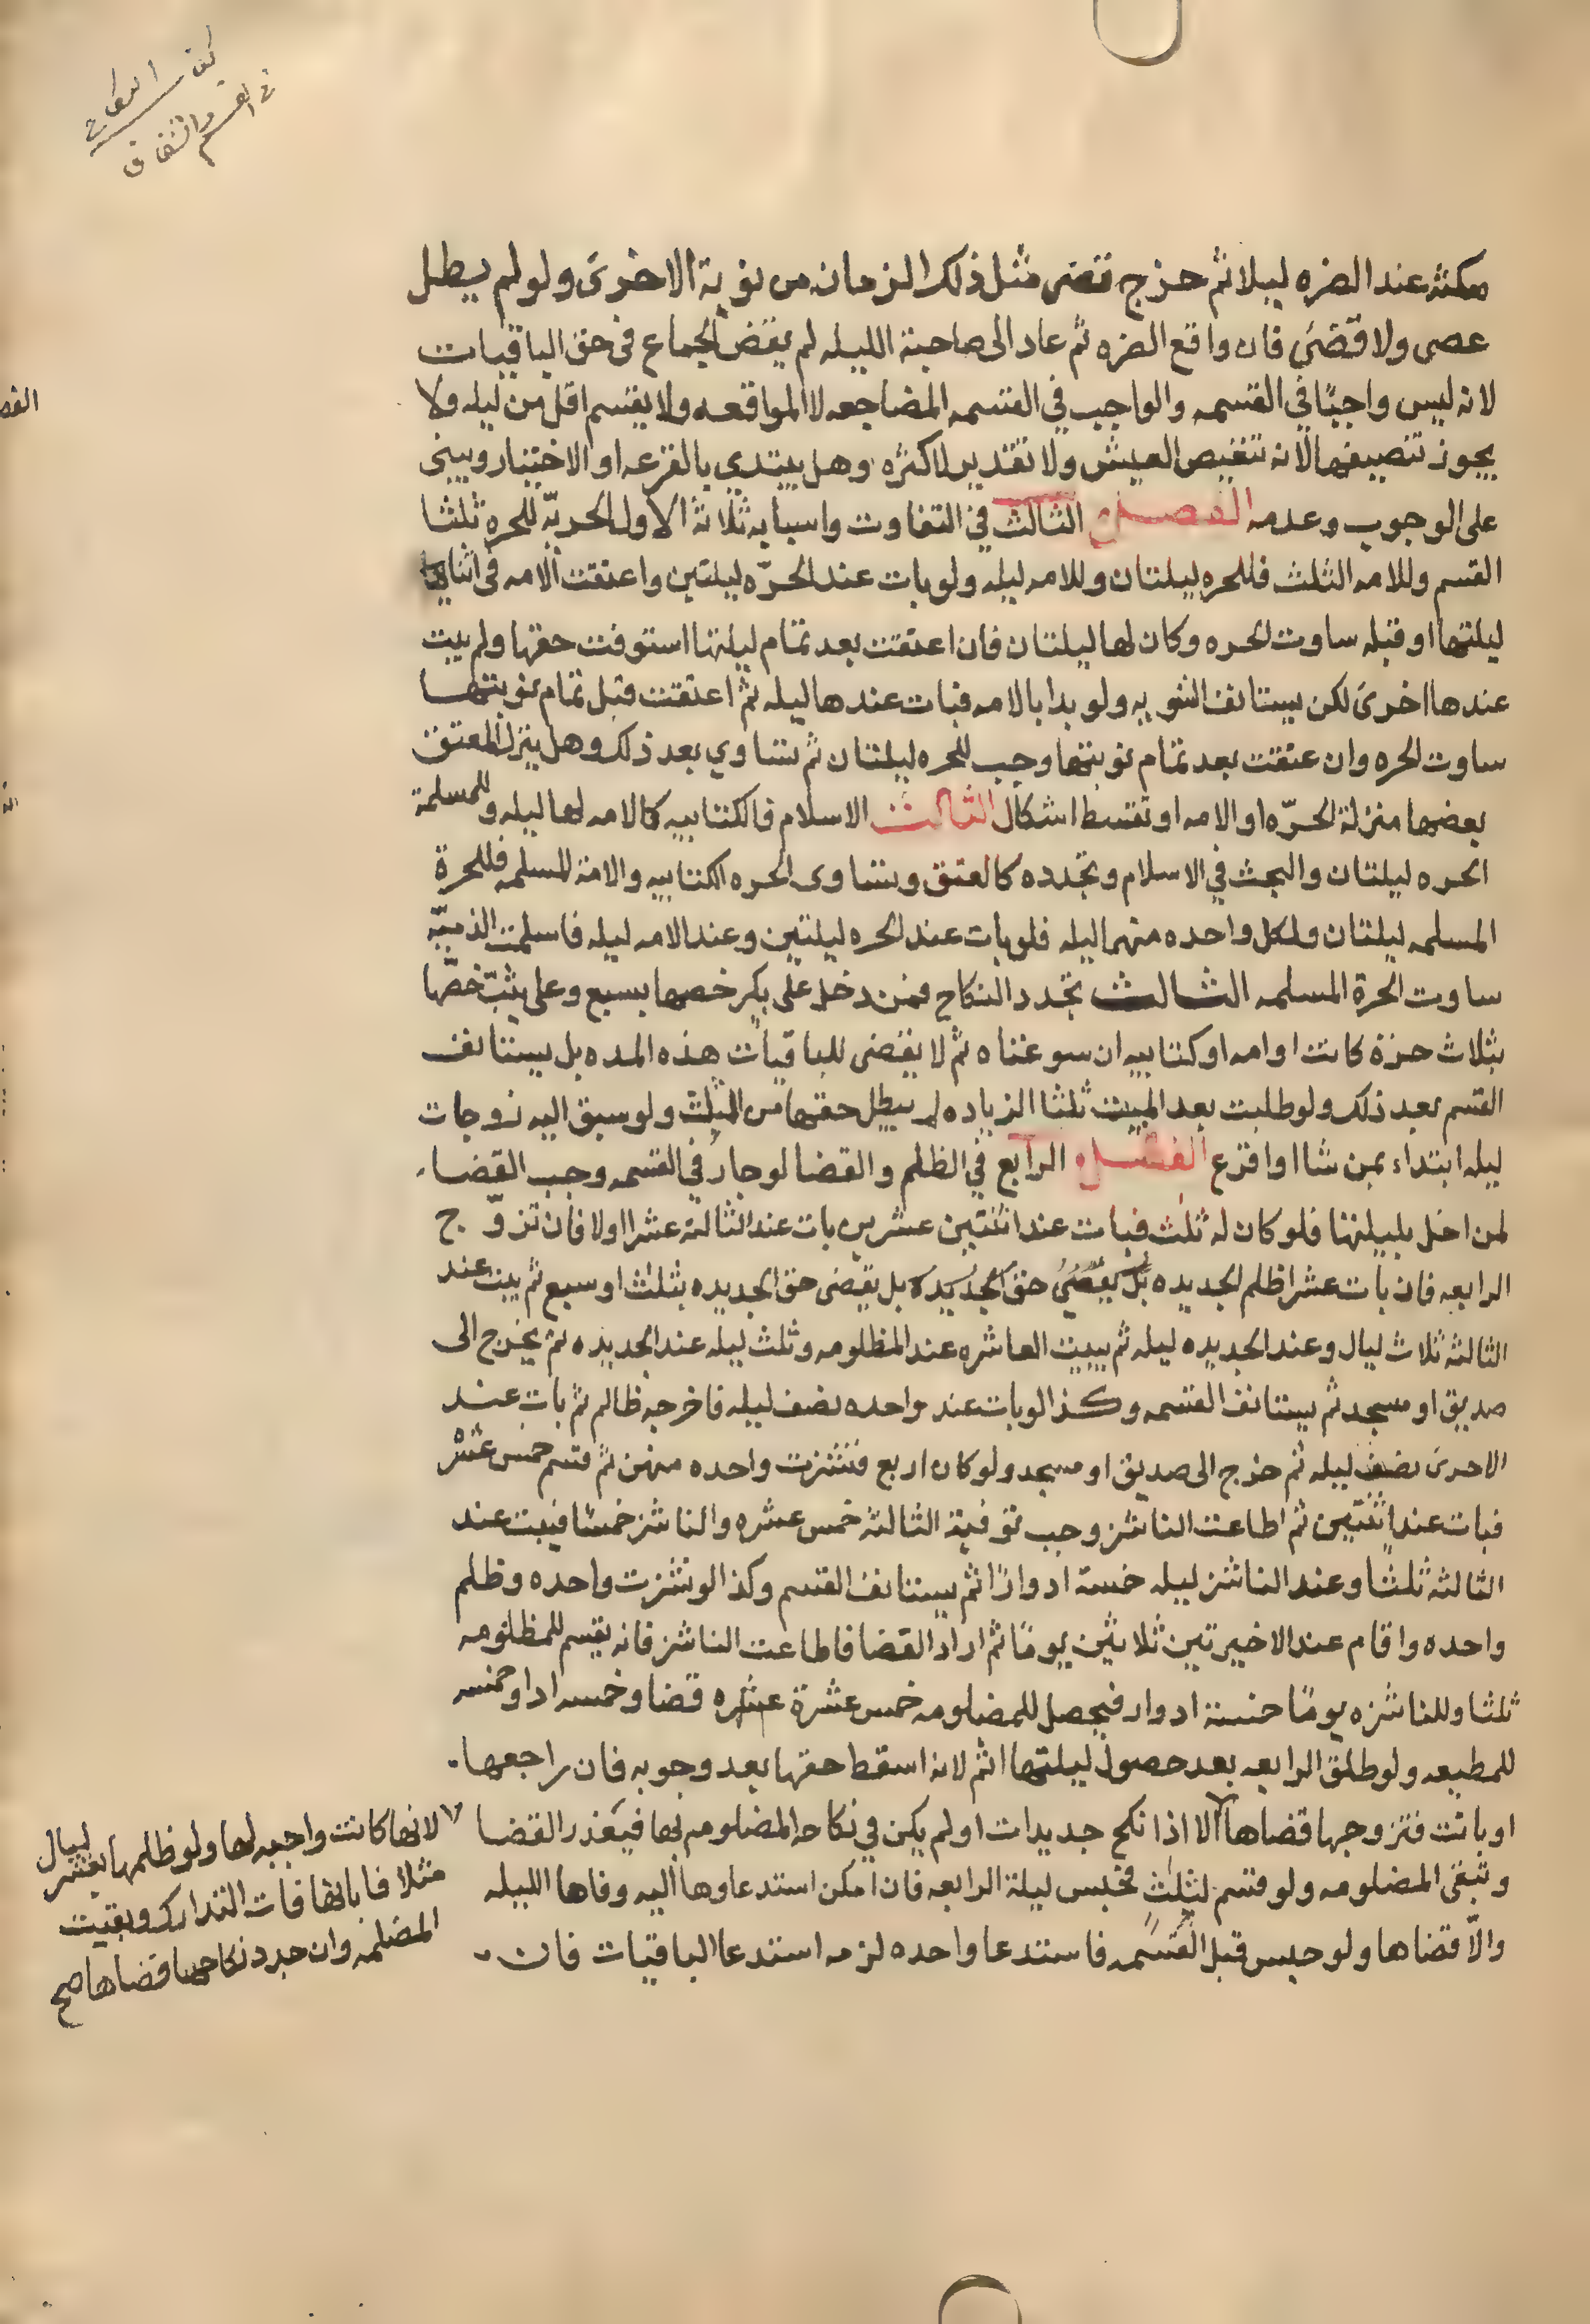 كتاب النكاح
في القسم والشقاق
مكثه عند الضره ليلا ثم خرج قضى مثل ذلك الزمان من نوبة الاخرى ولو لم يطل
عصى ولا قضى فان واقع الضره ثم عاد الى صاحبة الليله لم يقض الجماع في حق الباقيات
لانه ليس واجبًا في القسمه والواجب في القسمه المضاجعه لا المواقعه ولا يقسم اقل من ليله ولا
يجوز تنصيفها لانه تنغيص العيش ولا تقدير لاكثره وهل يبتدي بالقرعه او الاختيار ويبنى
على الوجوب وعدمه الفصل الثالث في التفاوت واسبابه ثلاثة الاول الحريّه للحره ثلثا
القسم وللامه الثلث فللحره ليلتان وللامه ليله ولو بات عند الحرّه ليلتين واعتقت الامه في اثنا
ليلتها او قبله ساوت الحره وكان لها ليلتان فان اعتقت بعد تمام ليلتها استوفت حقها ولم يبت
عندها اخرى لكن يستانف التسويه ولو بدا بالامه فبات عندها ليله ثم اعتقت قبل تمام نوبتها
ساوت الحره وان عتقت بعد تمام نوبتها وجب للحره ليلتان ثم تساوي بعد ذلك وهل ينزل المعتق
بعضها منزلة الحرّه او الامه او تقسط اشكال الثالث الاسلام فالكتابيه كالامه لها ليله وللمسلمة
الحره ليلتان والبحث في الاسلام وتجدده كالعتق وتساوى الحره الكتابيه والامة المسلمه فللحرة
المسلمه ليلتان ولكل واحده منهما ليله فلو بات عند الحره ليلتين وعند الامه ليله فاسلمت الذميّه
ساوت الحرة المسلمه الثالث تجدد النكاح فمن دخل على بكر خصها بسبع وعلى ثيّب خصّها
بثلاث حرة كانت او امه او كتابيه ان سوغناه ثم لا يقضى للباقيات هذه المده بل يستانف
القسم بعد ذلك ولو طلبت بعد المبيت ثلثا الزياده لم يبطل حقها من الثلث ولو سبق اليه زوجات
ليله ابتداء بمن شاا واقرع الفصل الرابع في الظلم والقضا لو جار في القسمه وجب القضا
لمن اخل بليلتها فلو كان له ثلث فبات عند اثنتين عشرين بات عند الثالثه عشرا ولا فان تزوّج
الرابعه فان بات عشرا ظلم الجديده بل يقضي حق الجديده بل يقضى حق الجديده بثلث او سبع ثم يبت عند
الثالثه ثلاث ليال وعند الجديده ليله ثم يبيت العاشره عند المظلومه وثلث ليله عند الجديده ثم يخرج الى
صديق او مسجد ثم يستانف القسمه وكذا لو بات عند واحده نصف ليله فاخرجه ظالم ثم بات عند
الاخرى نصف ليله ثم خرج الى صديق او مسجد ولو كان اربع فنشزت واحده منهن ثم قسم خمس عشر
فبات عند اثنتين ثم اطاعت الناشز وجب توفية الثالثة خمس عشره والناشز خمسًا فيبت عند
الثالثه ثلثًا وعند الناشز ليله خمسة ادوارًا ثم يستانف القسم وكذا لو نشزت واحده وظلم
واحده واقام عند الاخيرتين ثلاثين يومًا ثم اراد القضا فاطاعت الناشز فانه يقسم للمظلومه
ثلثا وللناشزه يومًا خمسة ادوار فيحصل للمضلومه خمس عشرة عشره قضا وخمسه ادا وخمسه
للمطيعه ولو طلق الرابعه بعد حصول ليلتها اثم لانه اسقط حقها بعد وجوبه فان راجعها
او بانت فتزوجها قضاها الا اذا نكح جديدات او لم يكن في نكاحه المضلوم بها فيتعذر القضا
وتبقى المضلومه ولو قسم لثلث فحبس ليلة الرابعه فان امكن استدعاوها اليه وفاها الليله
والّا قضاها ولو حبس قبل القسمه فاستدعا واحده لزمه استدعا الباقيات فان
لانها كانت واجبه لها ولو ظلمها بعشر ليال
مثلا فابانها فات التدارك وبقيت
المضلمه وان جدد نكاحها قضاها صح